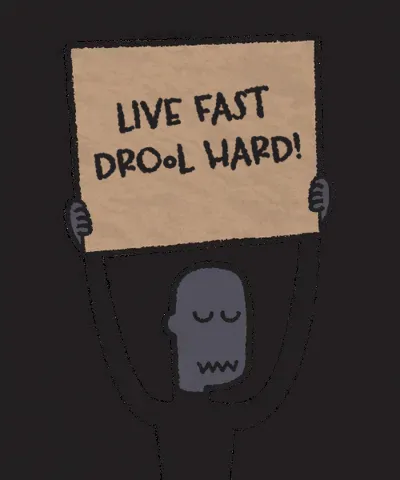 LIVE FAST
DROOL HARD!